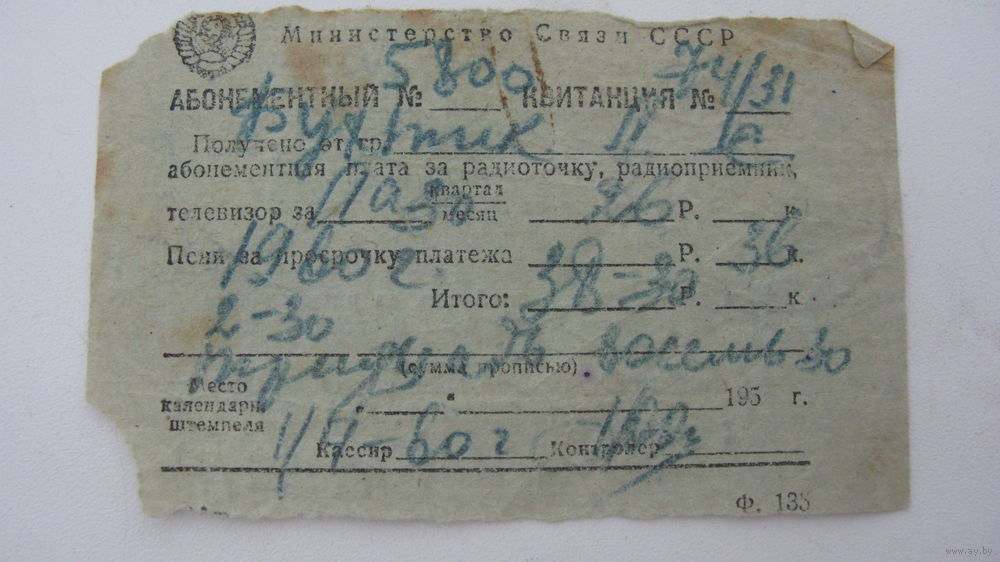 Министерство Связи СССР
5800 74/31
АБОНЕМЕНТНЫЙ № КВИТАНЦИЯ №
Получено от гр.
абонементная плата за радиоточку, радиоприемник,
квартал
телевизор за на 30 месяц 36 Р. к
Пени за просрочку платежа Р. 36 к.
1960 г.
Итого: 38-30 Р. к
2-30
тридцать восемь 30
(сумма прописью)
Место
календарн. " " 195 г.
штемпеля
1/IV-60 г
Кассир Контролер
Ф. 135
www.ay.by